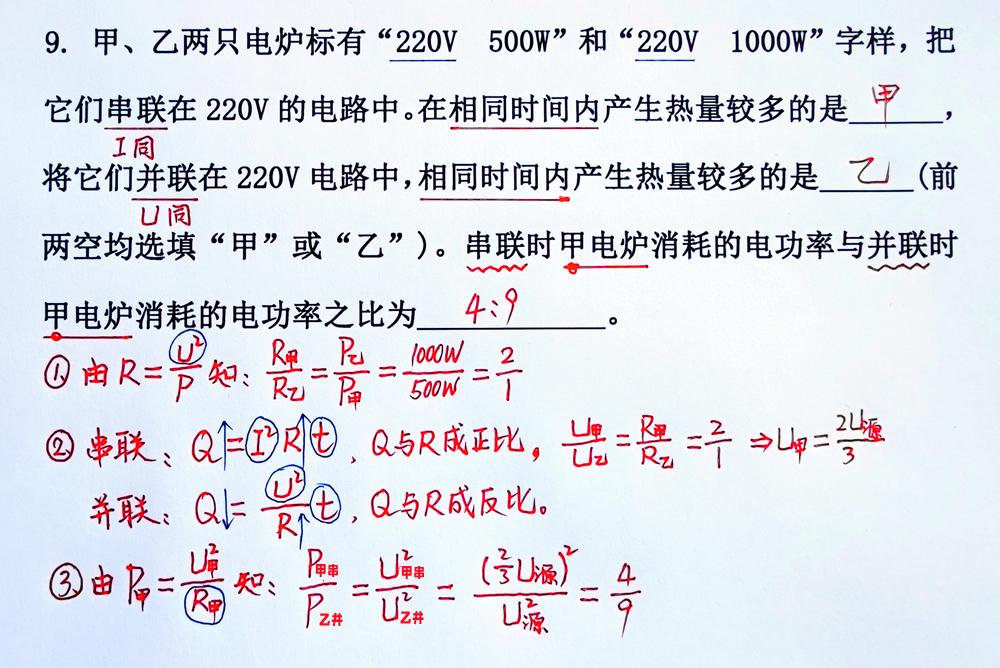 9. 甲、乙两只电炉标有“220V 500W”和“220V 1000W”字样，把
它们串联在 220V 的电路中。在相同时间内产生热量较多的是 甲 ，
I同
将它们并联在 220V 电路中，相同时间内产生热量较多的是 乙 (前
U同
两空均选填“甲”或“乙”)。串联时甲电炉消耗的电功率与并联时
甲电炉消耗的电功率之比为 4:9 。
① 由 R=U²/P 知: R甲/R乙=P乙/P甲=1000W/500W=2/1
② 串联: Q↑=I²R↑t, Q与R成正比, U甲/U乙=R甲/R乙=2/1⇒U甲=2U源/3
并联: Q↓=U²/R↑t, Q与R成反比。
③ 由 P甲=U甲²/R甲 知: P甲串/P乙并=U²甲串/U²乙并=(2/3U源)²/U²源=4/9